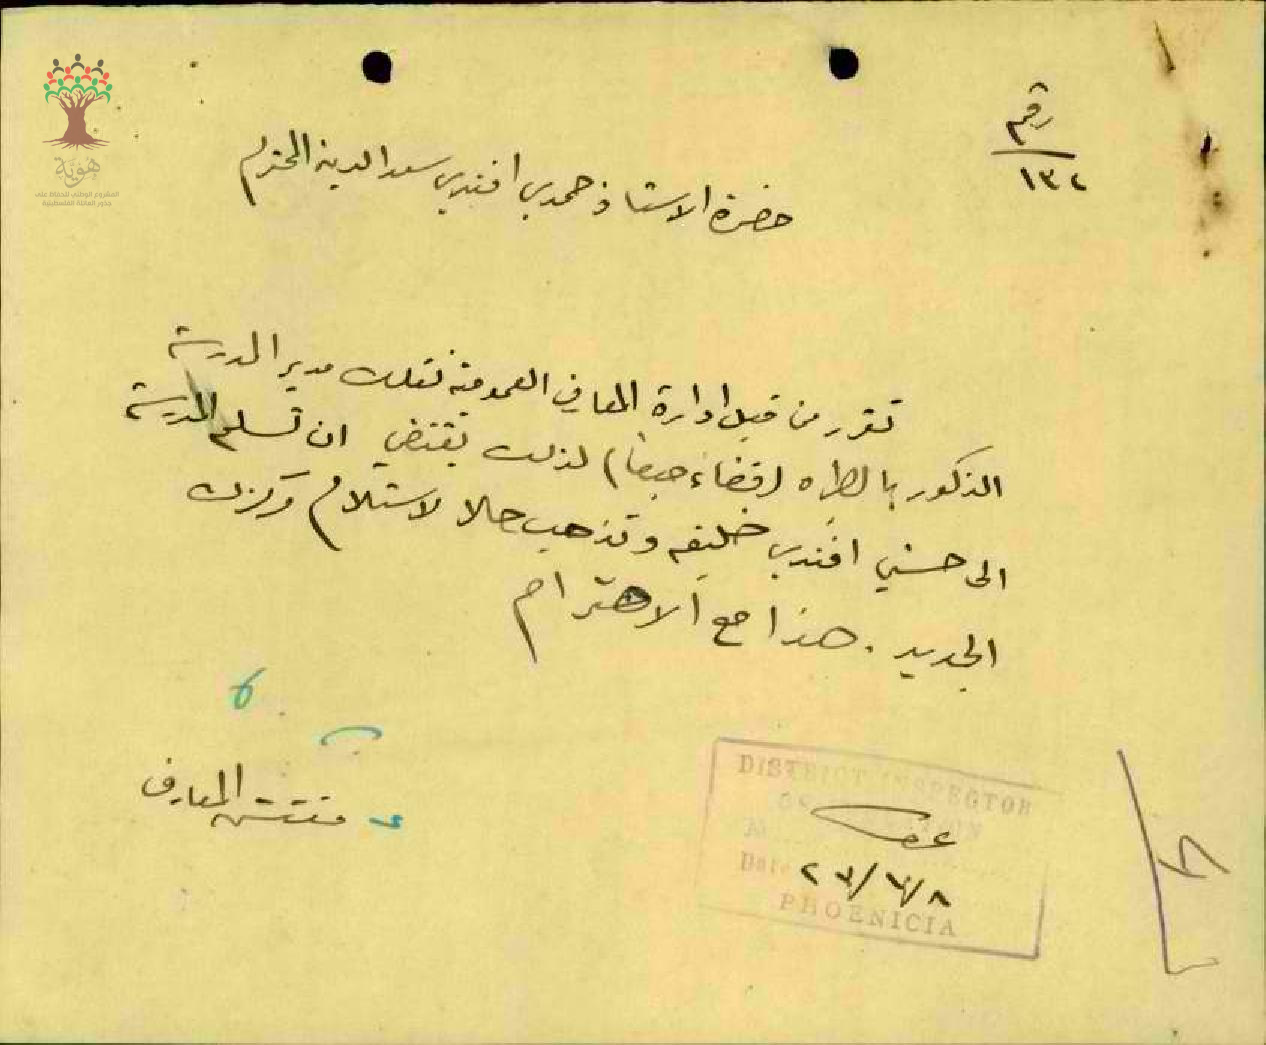 هوية
المشروع الوطني للحفاظ على
جذور العائلة الفلسطينية
رقم
١٣٢
حضرة الاستاذ حمدي افندي سعد الدين المحترم
تقرر من قبل ادارة المعارف العمومية نقلك مدير المدرسة
الذكور بالطيره (قضاء حيفا) لذلك يقتضي ان تسلم المدرسة
الى حسني افندي خليفه وتذهب حالا لاستلام مركزك
الجديد . هذا مع الاحترام
مفتش المعارف
DISTRICT INSPECTOR
OF EDUCATION
عكا
Date ٢٧/٦/٨
PHOENICIA